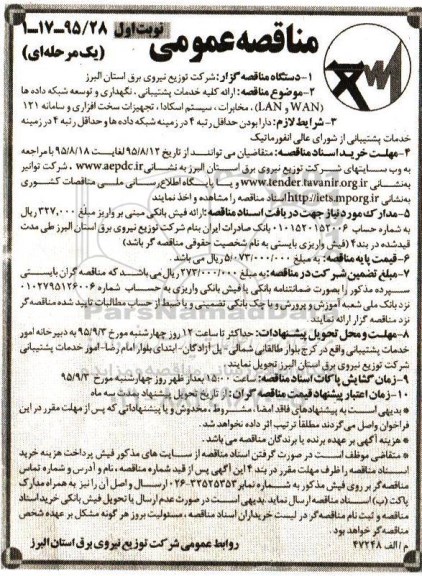 مناقصه عمومی
نوبت اول
۹۵/۲۸-۱۷-۱
(یک مرحله‌ای)
۱-دستگاه مناقصه گزار: شرکت توزیع نیروی برق استان البرز
۲-موضوع مناقصه: ارائه کلیه خدمات پشتیبانی، نگهداری و توسعه شبکه داده ها
(WAN و LAN)، مخابرات، سیستم اسکادا، تجهیزات سخت افزاری و سامانه ۱۲۱
۳-شرایط لازم: دارا بودن حداقل رتبه ۴ در زمینه شبکه داده ها و حداقل رتبه ۴ در زمینه
خدمات پشتیبانی از شورای عالی انفورماتیک
۴-مهلت خرید اسناد مناقصه: متقاضیان می توانند از تاریخ ۹۵/۸/۱۲ لغایت ۹۵/۸/۱۸ با مراجعه
به وب سایتهای شرکت توزیع نیروی برق استان البرز به نشانی www.aepdc.ir، شرکت توانیر
به نشانی www.tender.tavanir.org.ir و یا پایگاه اطلاع رسانی ملی مناقصات کشوری
به نشانی http://iets.mporg.ir اسناد مناقصه را مشاهده و اخذ نمایند
۵-مدارک مورد نیاز جهت دریافت اسناد مناقصه: ارائه فیش بانکی مبنی بر واریز مبلغ ۳۲۷/۰۰۰ ریال
به شماره حساب ۰۱۰۱۵۲۰۱۵۲۰۰۶ بانک صادرات ایران بنام شرکت توزیع نیروی برق استان البرز طی مدت
قید شده در بند ۴ (فیش واریزی بایستی به نام شخصیت حقوقی مناقصه گر باشد)
۶-قیمت پایه مناقصه: به مبلغ ۵/۰۷۳/۰۰۰/۰۰۰ ریال می باشد.
۷-مبلغ تضمین شرکت در مناقصه: به مبلغ ۲۷۲/۰۰۰/۰۰۰ ریال می باشد که مناقصه گران بایستی
سپرده مذکور را بصورت ضمانتنامه بانکی یا فیش بانکی واریزی به حساب شماره ۰۱۰۲۷۹۵۱۲۶۰۰۶
نزد بانک ملی شعبه آموزش و پرورش و یا چک بانکی تضمینی و یا ضبط از حساب مطالبات تایید شده مناقصه گر
نزد مناقصه گزار ارائه نمایند.
۸-مهلت و محل تحویل پیشنهادات: حداکثر تا ساعت ۱۲ روز چهارشنبه مورخ ۹۵/۹/۳ به دبیرخانه امور
خدمات پشتیبانی واقع در کرج بلوار طالقانی شمالی - پل آزادگان - ابتدای بلوار امام رضا - امور خدمات پشتیبانی
شرکت توزیع نیروی برق استان البرز تحویل نمایند.
۹-زمان گشایش پاکات اسناد مناقصه: ساعت ۱۵:۰۰ بعداز ظهر روز چهارشنبه مورخ ۹۵/۹/۳
۱۰-زمان اعتبار پیشنهاد قیمت مناقصه گران: از تاریخ تحویل پیشنهاد بمدت سه ماه
* بدیهی است به پیشنهادهای فاقد امضا، مشروط، مخدوش و یا پیشنهاداتی که پس از مهلت مقرر در این
فراخوان واصل می گردند مطلقا ترتیب اثر داده نخواهد شد.
* هزینه آگهی بر عهده برنده یا برندگان مناقصه می باشد.
* متقاضی موظف است در صورت گرفتن اسناد مناقصه از سایت های مذکور فیش پرداخت هزینه خرید
اسناد مناقصه را ظرف مهلت مقرر در بند ۴ این آگهی پس از قید شماره مناقصه، نام و آدرس و شماره تماس
مناقصه گر بر روی فیش مذکور به شماره نمابر ۳۲۵۲۵۳۵۳-۰۲۶ ارسال و اصل آن را نیز به همراه مدارک
پاکت (ب) اسناد مناقصه ارسال نماید بدیهی است در صورت عدم ارسال یا تحویل فیش بانکی خرید اسناد
مناقصه و ثبت نام مناقصه گر در لیست خریداران اسناد مناقصه، مسئولیت بروز هر گونه مشکل بر عهده شخص
مناقصه گر خواهد بود.
م/الف ۴۷۲۴۸
روابط عمومی شرکت توزیع نیروی برق استان البرز